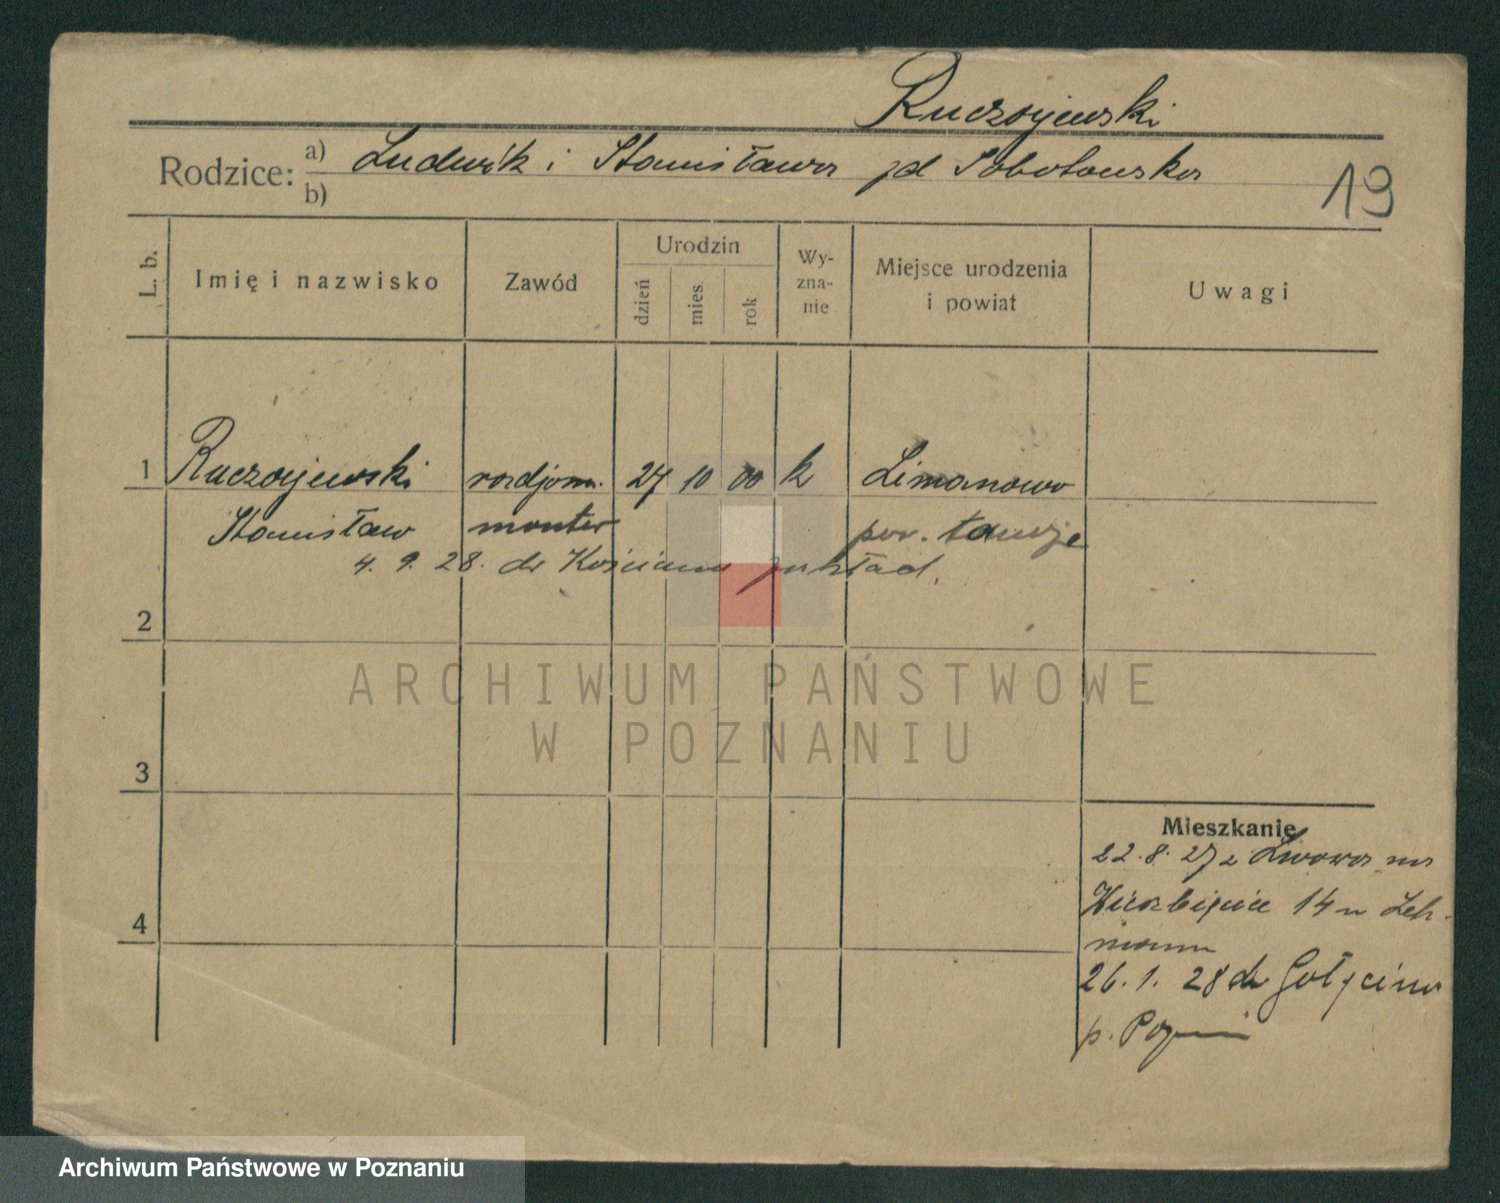 Ruczojewski
Rodzice: a) Ludwik i Stanisława zd Sobotowska
b)
19
L. b.
Imię i nazwisko
Zawód
Urodzin
dzień
mies.
rok
Wy-
zna-
nie
Miejsce urodzenia
i powiat
Uwagi
1 Ruczojewski radjom. 27 10 00 k Limanowo
Stanisław monter pow.
4. 9. 28. do
2
3
4
Mieszkanie
22. 8. 27 z Lwowa na
14 u Leh-
mann
26. 1. 28 do Gołęcina
p.
ARCHIWUM PAŃSTWOWE
W POZNANIU
Archiwum Państwowe w Poznaniu